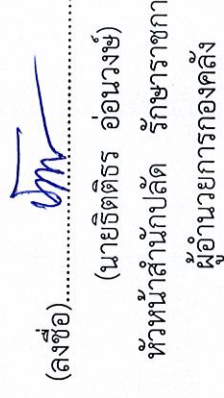 (ลงชื่อ)....................................
(นายธิตติธร อ่อนวงษ์)
หัวหน้าสำนักปลัด รักษาราชกา
ผู้อำนวยการกองคลัง